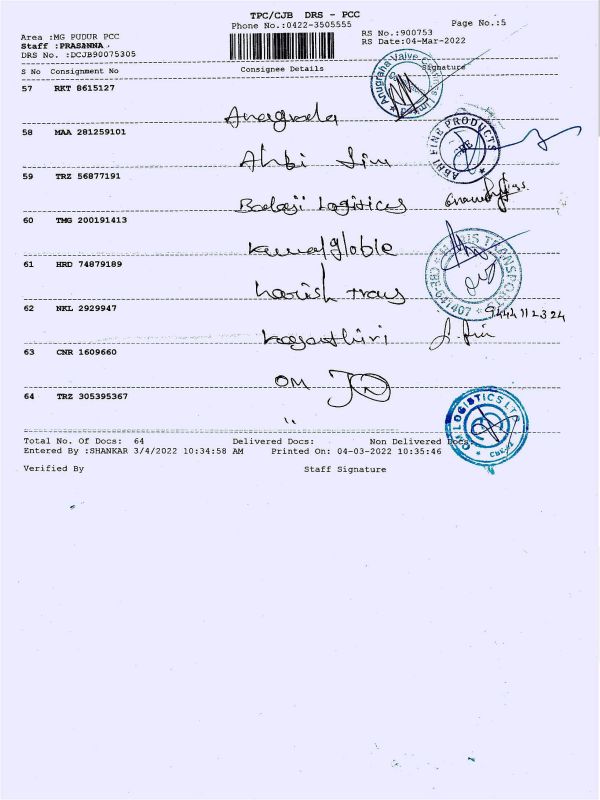 TPC/CJB DRS - PCC
Phone No.:0422-3505555
Page No.:5
Area :MG PUDUR PCC
RS No.:900753
Staff :PRASANNA .
RS Date:04-Mar-2022
DRS No. :DCJB90075305
S No Consignment No Consignee Details Signature
57 RKT 8615127
Anugraha Valve
Anugraha
58 MAA 281259101
ABHI FINE PRODUCTS
CBE
Abhi Fim
59 TRZ 56877191
Balaji Logitices
60 TMG 200191413
Kamal globle
61 HRD 74879189
TRANSPORTS
CBE-641407
harish Trans
62 NKL 2929947
9444112324
63 CNR 1609660
OM
64 TRZ 305395367
OM LOGISTICS LTD
"
Total No. Of Docs: 64 Delivered Docs: Non Delivered Docs:
Entered By :SHANKAR 3/4/2022 10:34:58 AM Printed On: 04-03-2022 10:35:46
Verified By Staff Signature